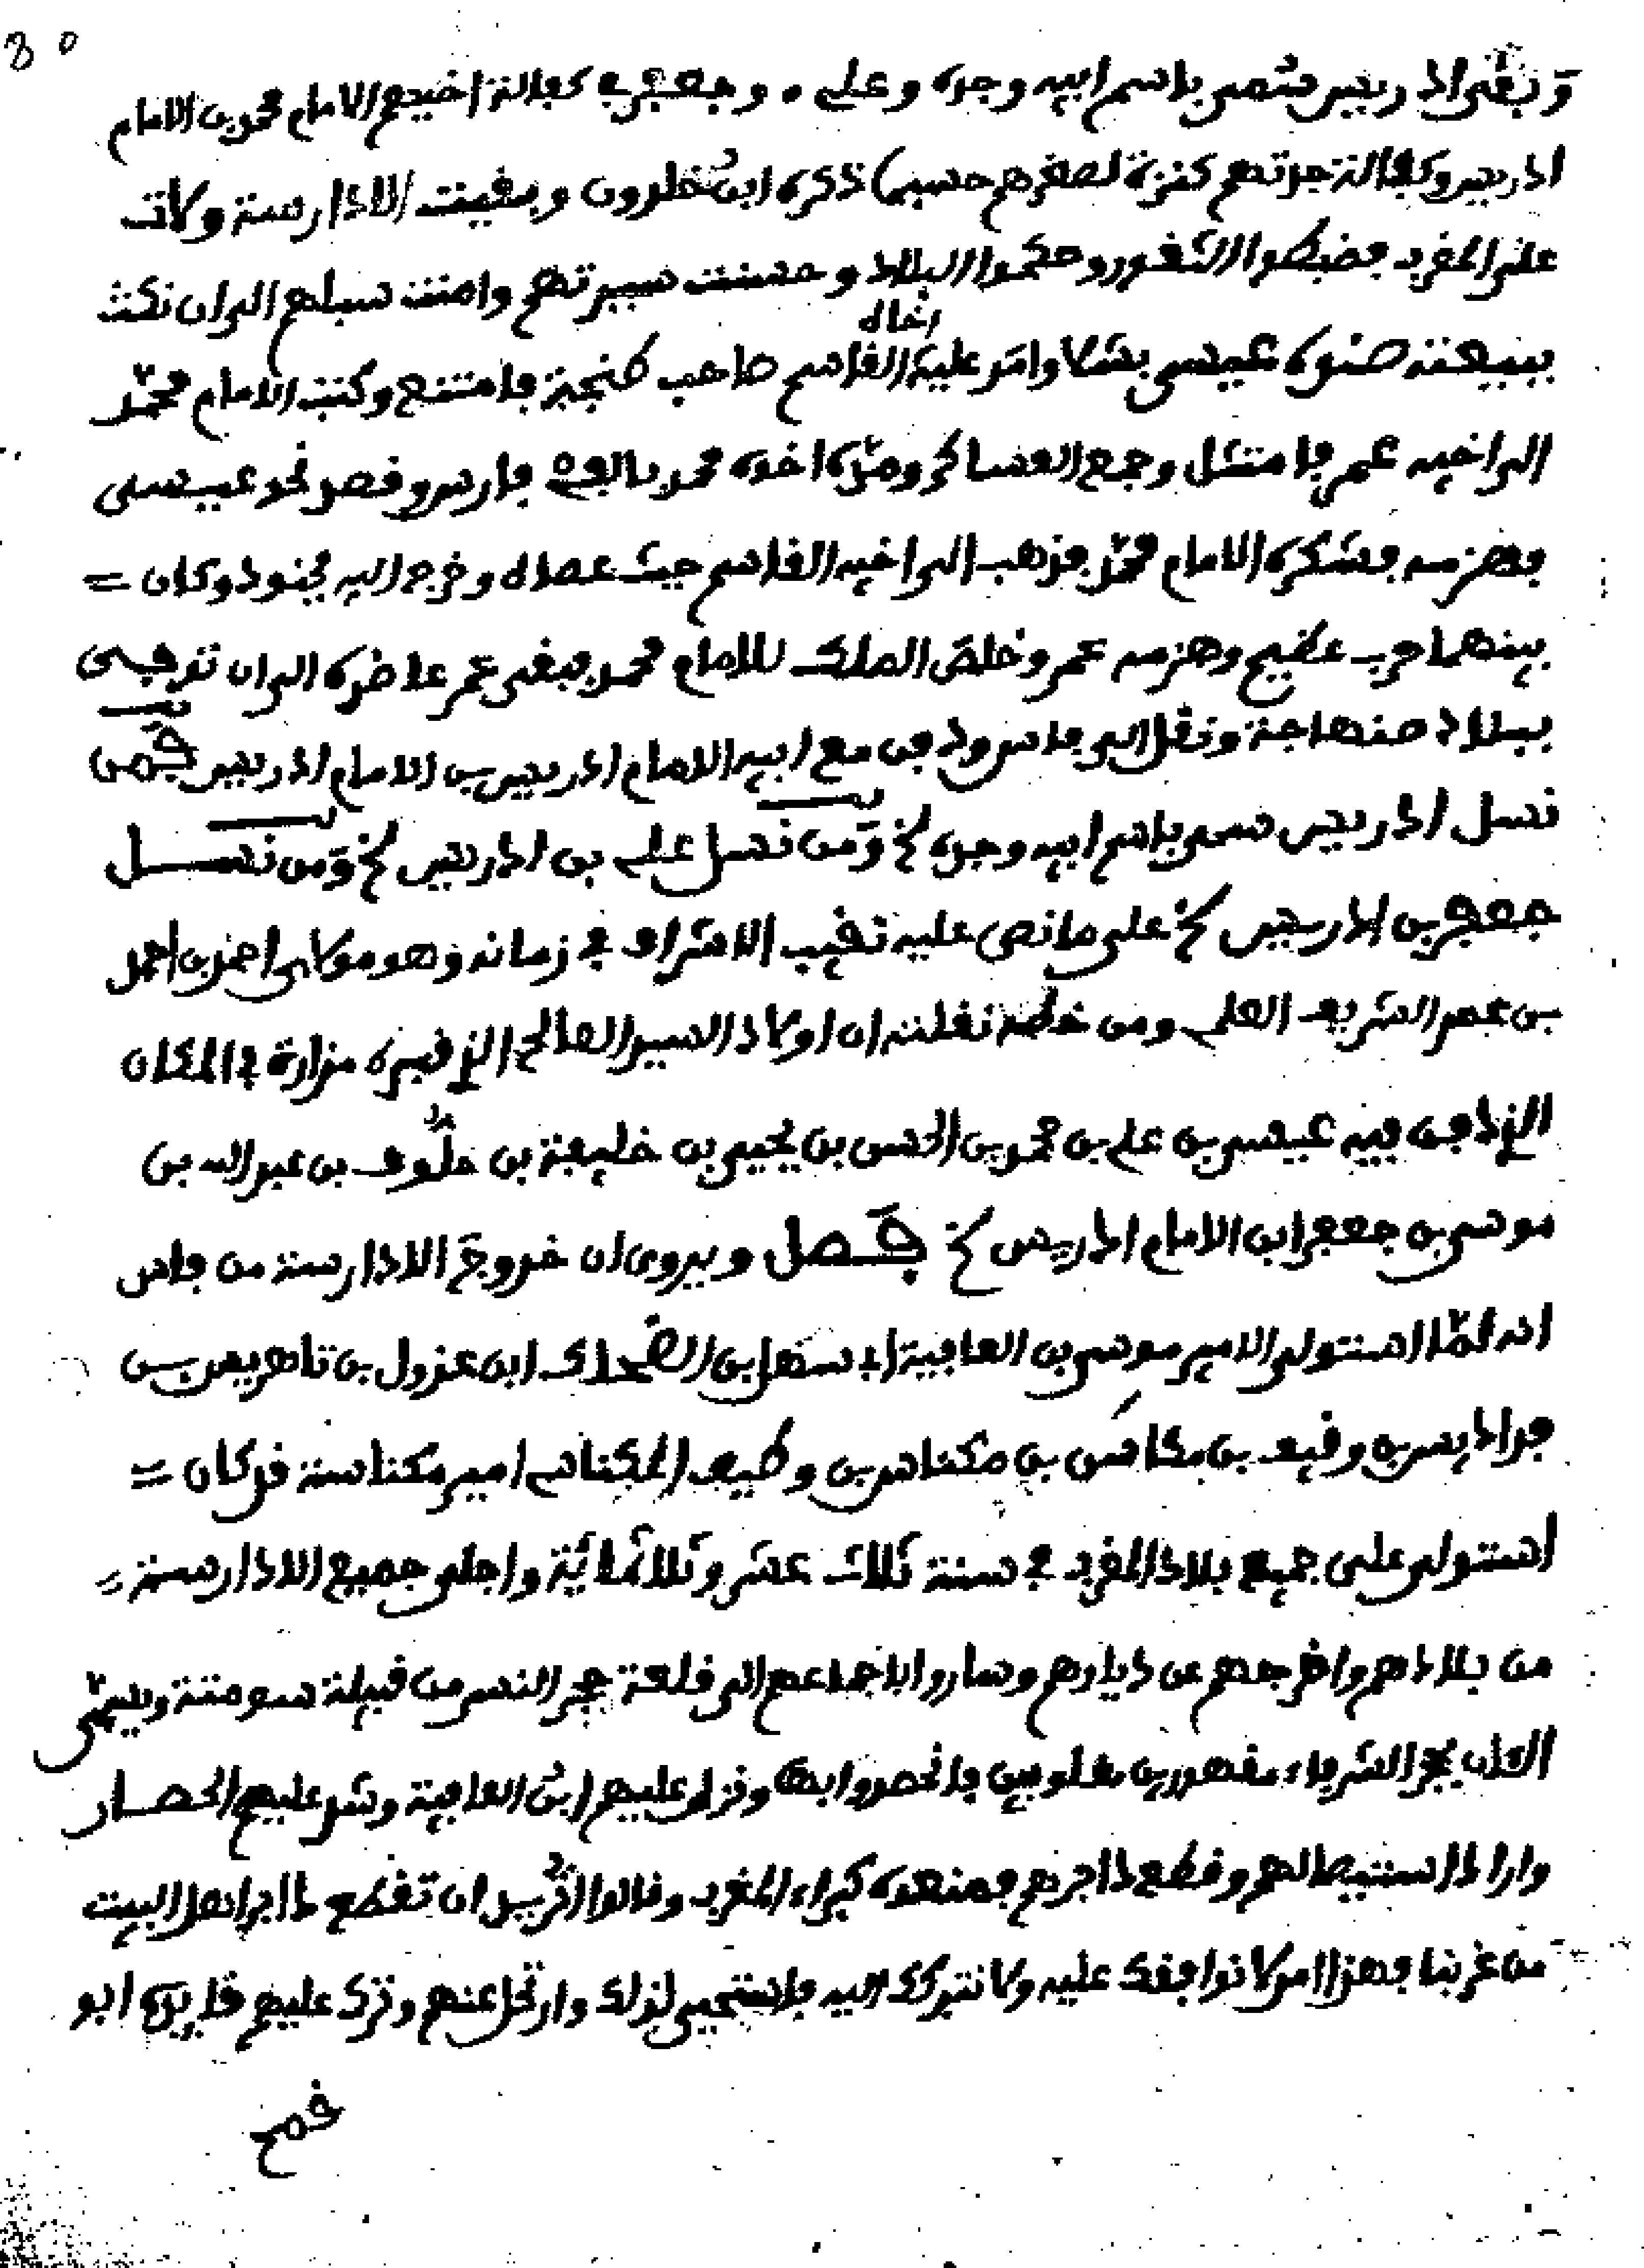 80
وبقى ادريس سمى باسم ابيه وجده وعلى . وجعفر في كفالة اخيهم الامام محمد بن الامام
ادريس وكفالة جدتهم كنزة لصغرهم حسبما ذكره ابن خلدون وبقيت الادارسة ولات
على المغرب فضبطوا الثغور وحكموا البلاد وحسنت سيرتهم وامنت سبلهم الى ان نكث
ببيعته صنوه عيسى بشلا وامر عليه اخاه القاسم صاحب طنجة فامتنع وكتب الامام محمد
الى اخيه عمر فامتثل وجمع العساكر ومده اخوه محمد بالف فارس وقصد نحو عيسى
فهزمه فشكره الامام محمد فذهب الى اخيه القاسم حيث عصاه وخرج اليه بجنود وكان =
بينهما حرب عظيم وهزمه عمر وخلص الملك للامام محمد فبقى عمر عاضده الى ان توفي
ببلاد صنهاجة ونقل الى فاس ودفن مع ابيه الامام ادريس بن الامام ادريس فمن
نسل ادريس سمى باسم ابيه وجده لخ ومن نسل علي بن ادريس لخ ومن نسل
جعفر بن ادريس لخ على ما نص عليه نقيب الاشراف في زمانه وهو مولاى احمد بن احمد
بن عمر الشريف العلمي ومن خطه نقلته ان اولاد السيد الصالح الذ قبره مزارة في المكان
الذ دفن فيه عيسى بن علي بن محمد بن الحسن بن يحيى بن خليفة بن حلوف بن عبد الله بن
موسى بن جعفر ابن الامام ادريس لخ فصل ويروى ان خروج الادارسة من فاس
انه لما استولى الامير موسى بن العافية اب سهل بن الضحاك ابن عزول بن تافريس بن
فراديس بن وقيف بن مكناس بن مكناس بن وطيف المكناسي امير مكناسة قد كان =
استولى على جميع بلاد المغرب في سنة ثلاث عشر وثلاثمائة واجلى جميع الادارسة =
من بلادهم واخرجهم عن ديارهم وساروا باجماعهم الى قلعة حجر النسر من قبيلة سوماتة ويسمى
الان بحجر الشرفاء مقهورين مغلوبين فانحصروا بها ونزل عليهم ابن العافية وشد عليهم الحصار
واراد استيصالهم وقطع دابرهم فمنعوه كبراء المغرب وقالوا اتريد ان تقطع دابر اهل البيت
من غربنا فهذا امر لا نوافقك عليه ولا نتركك اليه فاستحيى لذلك وارتحل عنهم وترك عليهم قايده ابو
قمح